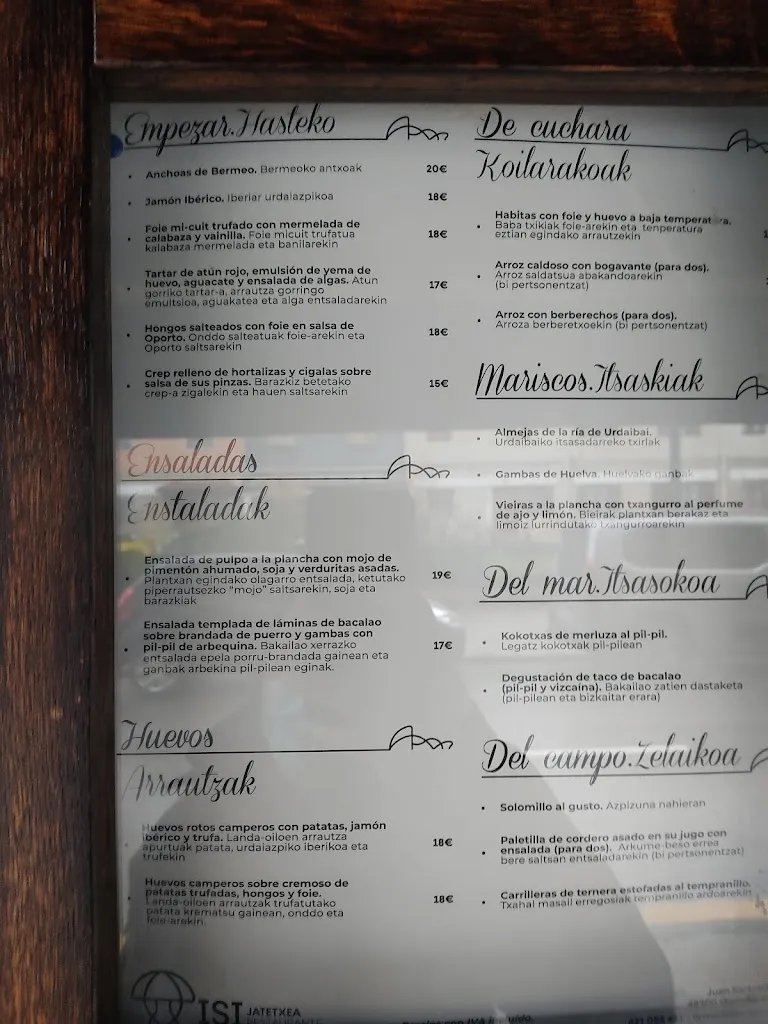 Empezar.Hasteko
Anchoas de Bermeo. Bermeoko antxoak 20€
Jamón Ibérico. Iberiar urdaiazpikoa 18€
Foie mi-cuit trufado con mermelada de
calabaza y vainilla. Foie micuit trufatua 18€
kalabaza mermelada eta banilarekin
Tartar de atún rojo, emulsión de yema de
huevo, aguacate y ensalada de algas. Atun 17€
gorriko tartar-a, arrautza gorringo
emultsioa, aguakatea eta alga entsaladarekin
Hongos salteados con foie en salsa de
Oporto. Onddo salteatuak foie-arekin eta 18€
Oporto saltsarekin
Crep relleno de hortalizas y cigalas sobre
salsa de sus pinzas. Barazkiz betetako 15€
crep-a zigalekin eta hauen saltsarekin
Ensaladas
Enstaladak
Ensalada de pulpo a la plancha con mojo de
pimentón ahumado, soja y verduritas asadas.
Plantxan egindako olagarro entsalada, ketutako 19€
piperrautsezko "mojo" saltsarekin, soja eta
barazkiak
Ensalada templada de láminas de bacalao
sobre brandada de puerro y gambas con
pil-pil de arbequina. Bakailao xerrazko 17€
entsalada epela porru-brandada gainean eta
ganbak arbekina pil-pilean eginak.
Huevos
Arrautzak
Huevos rotos camperos con patatas, jamón
ibérico y trufa. Landa-oiloen arrautza 18€
apurtuak patata, urdaiazpiko iberikoa eta
trufekin
Huevos camperos sobre cremoso de
patatas trufadas, hongos y foie.
Landa-oiloen arrautzak trufatutako 18€
patata krematsu gainean, onddo eta
foie-arekin.
ISI JATETXEA
RESTAURANTE
De cuchara
Koilarakoak
Habitas con foie y huevo a baja temperatura.
Baba txikiak foie-arekin eta tenperatura
eztian egindako arrautzekin
Arroz caldoso con bogavante (para dos).
Arroz saldatsua abakandoarekin
(bi pertsonentzat)
Arroz con berberechos (para dos).
Arroza berberetxoekin (bi pertsonentzat)
Mariscos.Itsaskiak
Almejas de la ría de Urdaibai.
Urdaibaiko itsasadarreko txirlak
Gambas de Huelva. Huelvako ganbak
Vieiras a la plancha con txangurro al perfume
de ajo y limón. Bieirak plantxan berakaz eta
limoiz lurrindutako txangurroarekin
Del mar.Itsasokoa
Kokotxas de merluza al pil-pil.
Legatz kokotxak pil-pilean
Degustación de taco de bacalao
(pil-pil y vizcaína). Bakailao zatien dastaketa
(pil-pilean eta bizkaitar erara)
Del campo.Zelaikoa
Solomillo al gusto. Azpizuna nahieran
Paletilla de cordero asado en su jugo con
ensalada (para dos). Arkume-beso errea
bere saltsan entsaladarekin (bi pertsonentzat)
Carrilleras de ternera estofadas al tempranillo.
Txahal masail erregosiak tempranillo ardoarekin